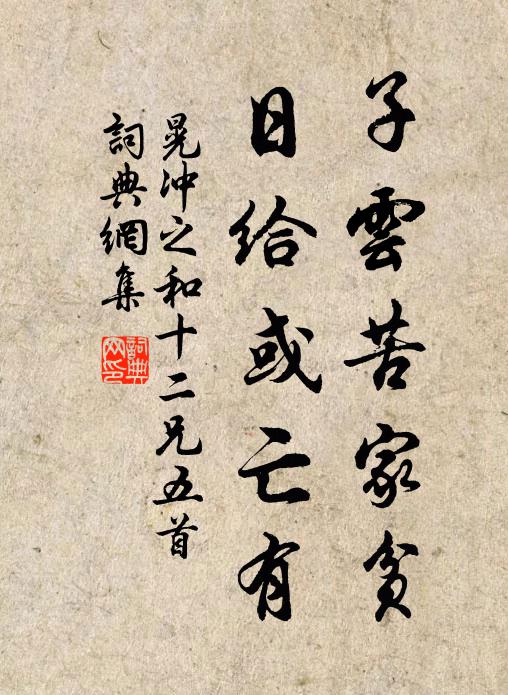 子雲苦家貧
日給或亡有
晁沖之和十二兄五首
詞典網集
詞典網印